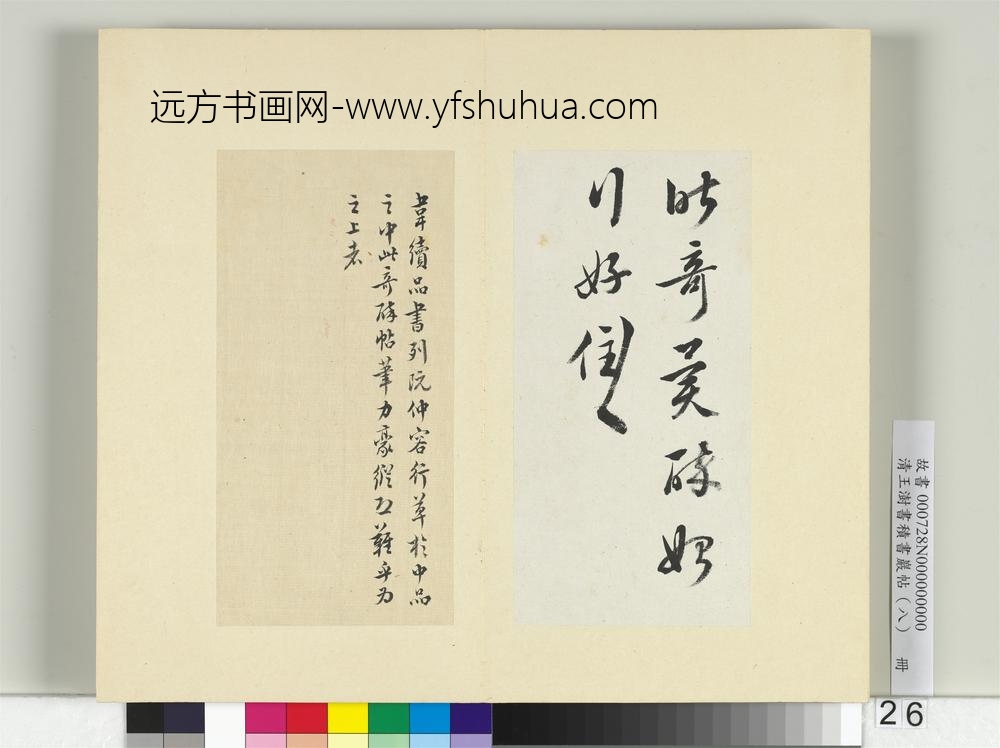 远方书画网-www.yfshuhua.com
奇
醉
行好
韋續品書列阮仲容行草於中品
之中此奇醉帖筆力豪縱難乎为
之上者
故書 000728N000000000
清王澍書積書巖帖（八） 冊
26